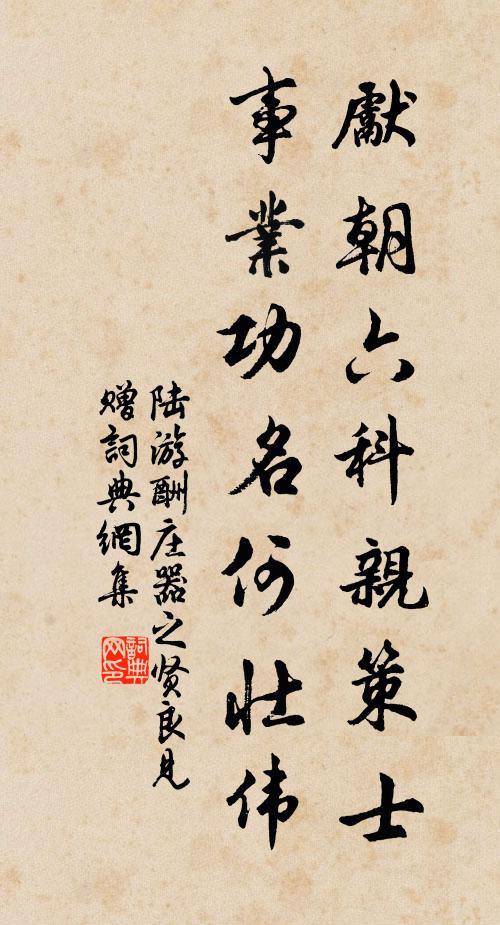 獻朝六科親策士
事業功名何壮伟
陆游酬庄器之贤良见
赠詞典網集
詞典网印